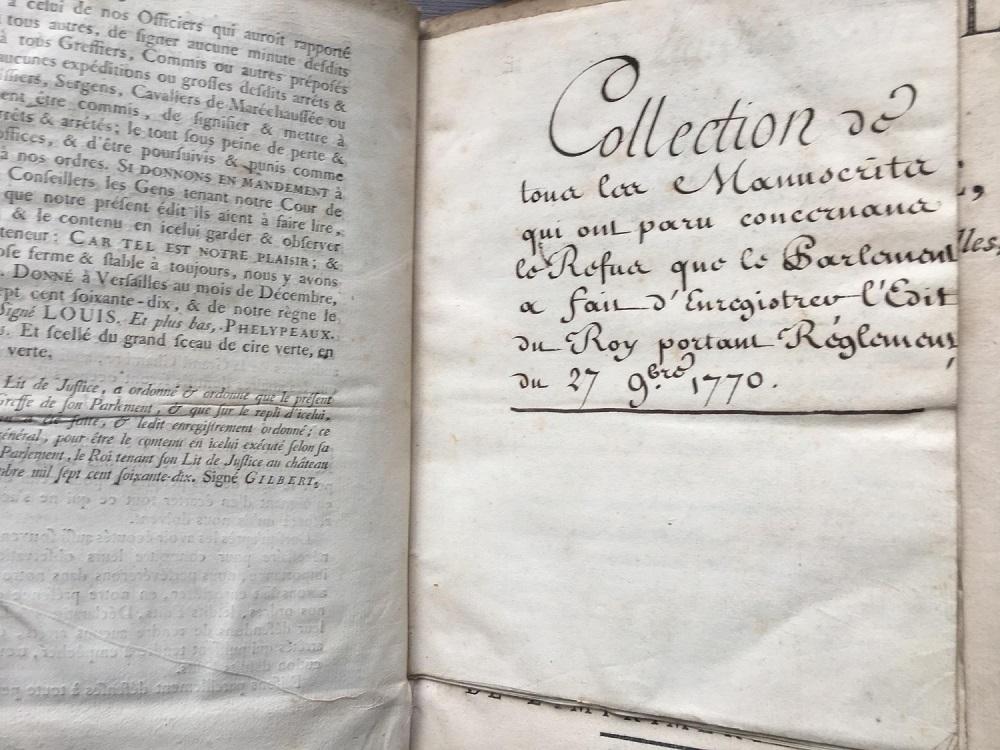 à celui de nos Officiers qui auroit rapporté
tous autres, de ſigner aucune minute deſdits
à tous Greffiers, Commis ou autres prépoſés
aucunes expéditions ou groſſes deſdits arrêts &
iſſiers, Sergens, Cavaliers de Maréchauſſée ou
ent être commis, de ſignifier & mettre à
rrêts & arrêtés; le tout ſous peine de perte &
offices, & d'être pourſuivis & punis comme
à nos ordres. SI DONNONS EN MANDEMENT à
Conſeillers les Gens tenant notre Cour de
que notre préſent édit ils aient à faire lire,
& le contenu en icelui garder & obſerver
teneur: CAR TEL EST NOTRE PLAISIR; &
oſe ferme & ſtable à toujours, nous y avons
DONNÉ à Verſailles au mois de Décembre,
pt cent ſoixante-dix, & de notre règne le
Signé LOUIS. Et plus bas, PHELYPEAUX.
s. Et ſcellé du grand ſceau de cire verte, en
verte.
Lit de Juſtice, a ordonné & ordonne que le préſent
Greffe de ſon Parlement, & que ſur le repli d'icelui,
ledit enregiſtrement ordonné; ce
énéral, pour être le contenu en icelui exécuté ſelon ſa
Parlement, le Roi tenant ſon Lit de Juſtice au château
mbre mil ſept cent ſoixante-dix. Signé GILBERT,
Collection de
tous les Manuscrits
qui ont paru concernans
le Refus que le Parlement
a fait d'Enregistrer l'Edit
du Roy portant Réglement
du 27 9.bre 1770.
lles,